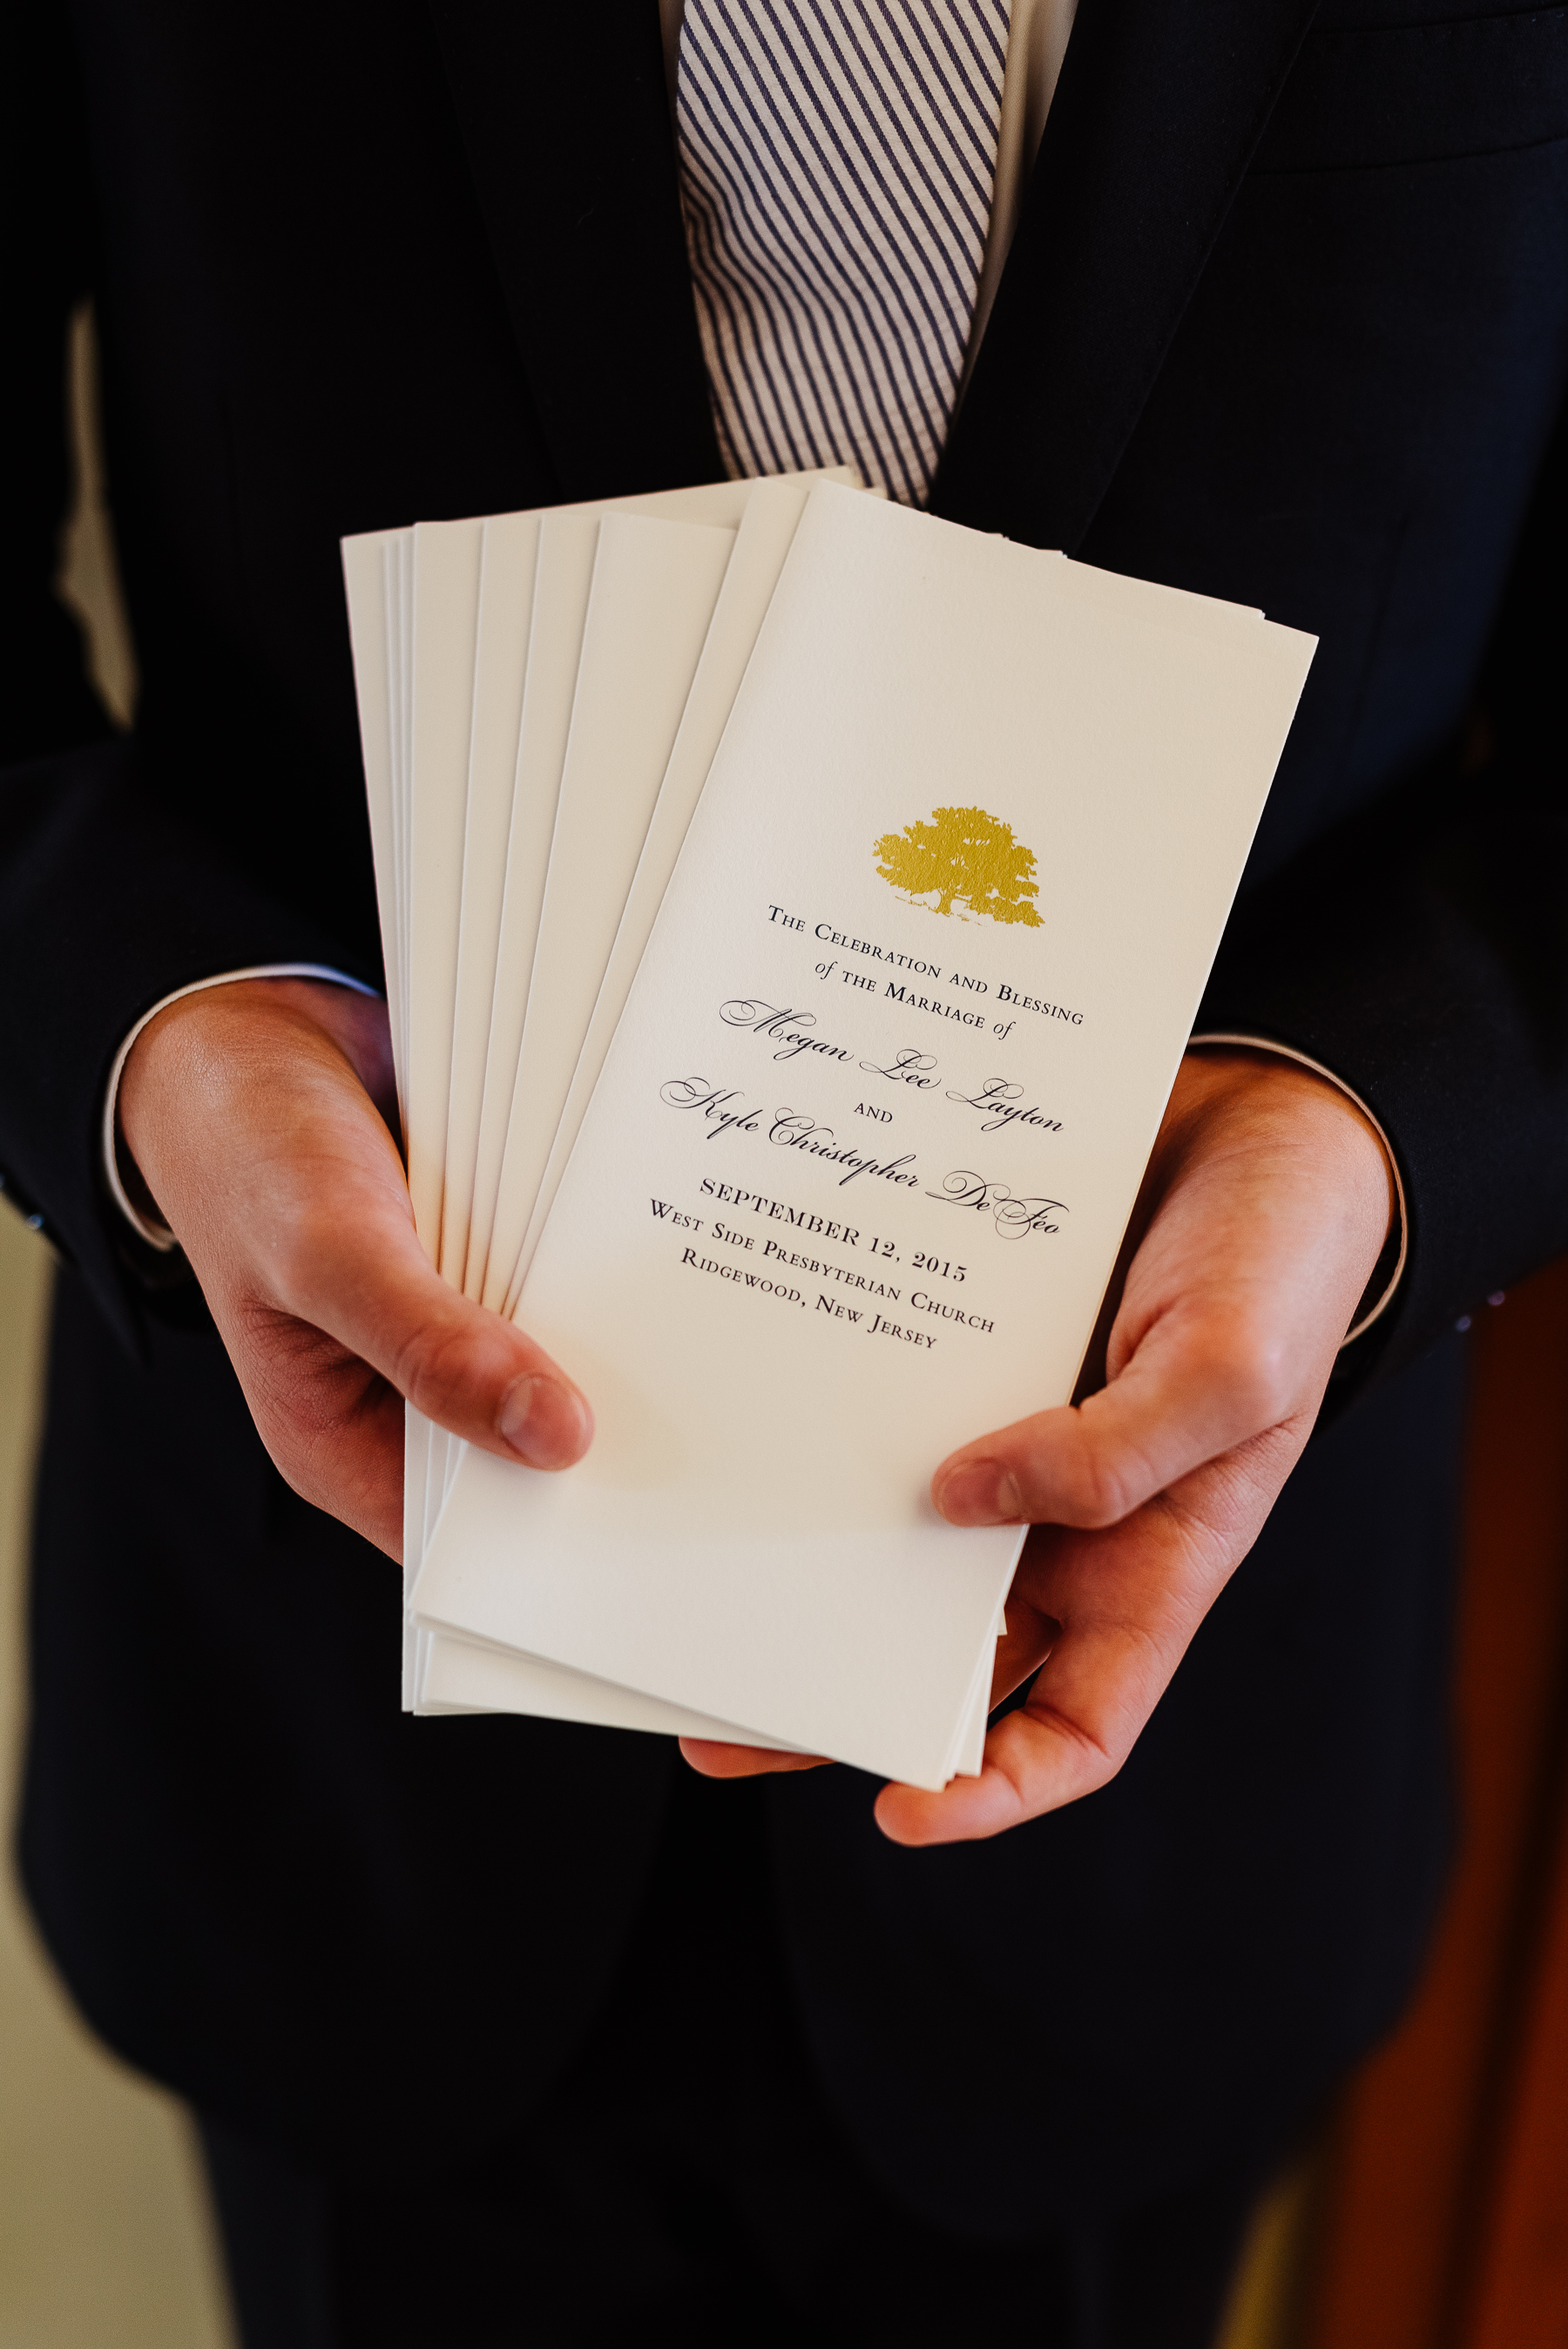 The Celebration and Blessing
of the Marriage of
Megan Lee Layton
and
Kyle Christopher DeFeo
SEPTEMBER 12, 2015
West Side Presbyterian Church
Ridgewood, New Jersey